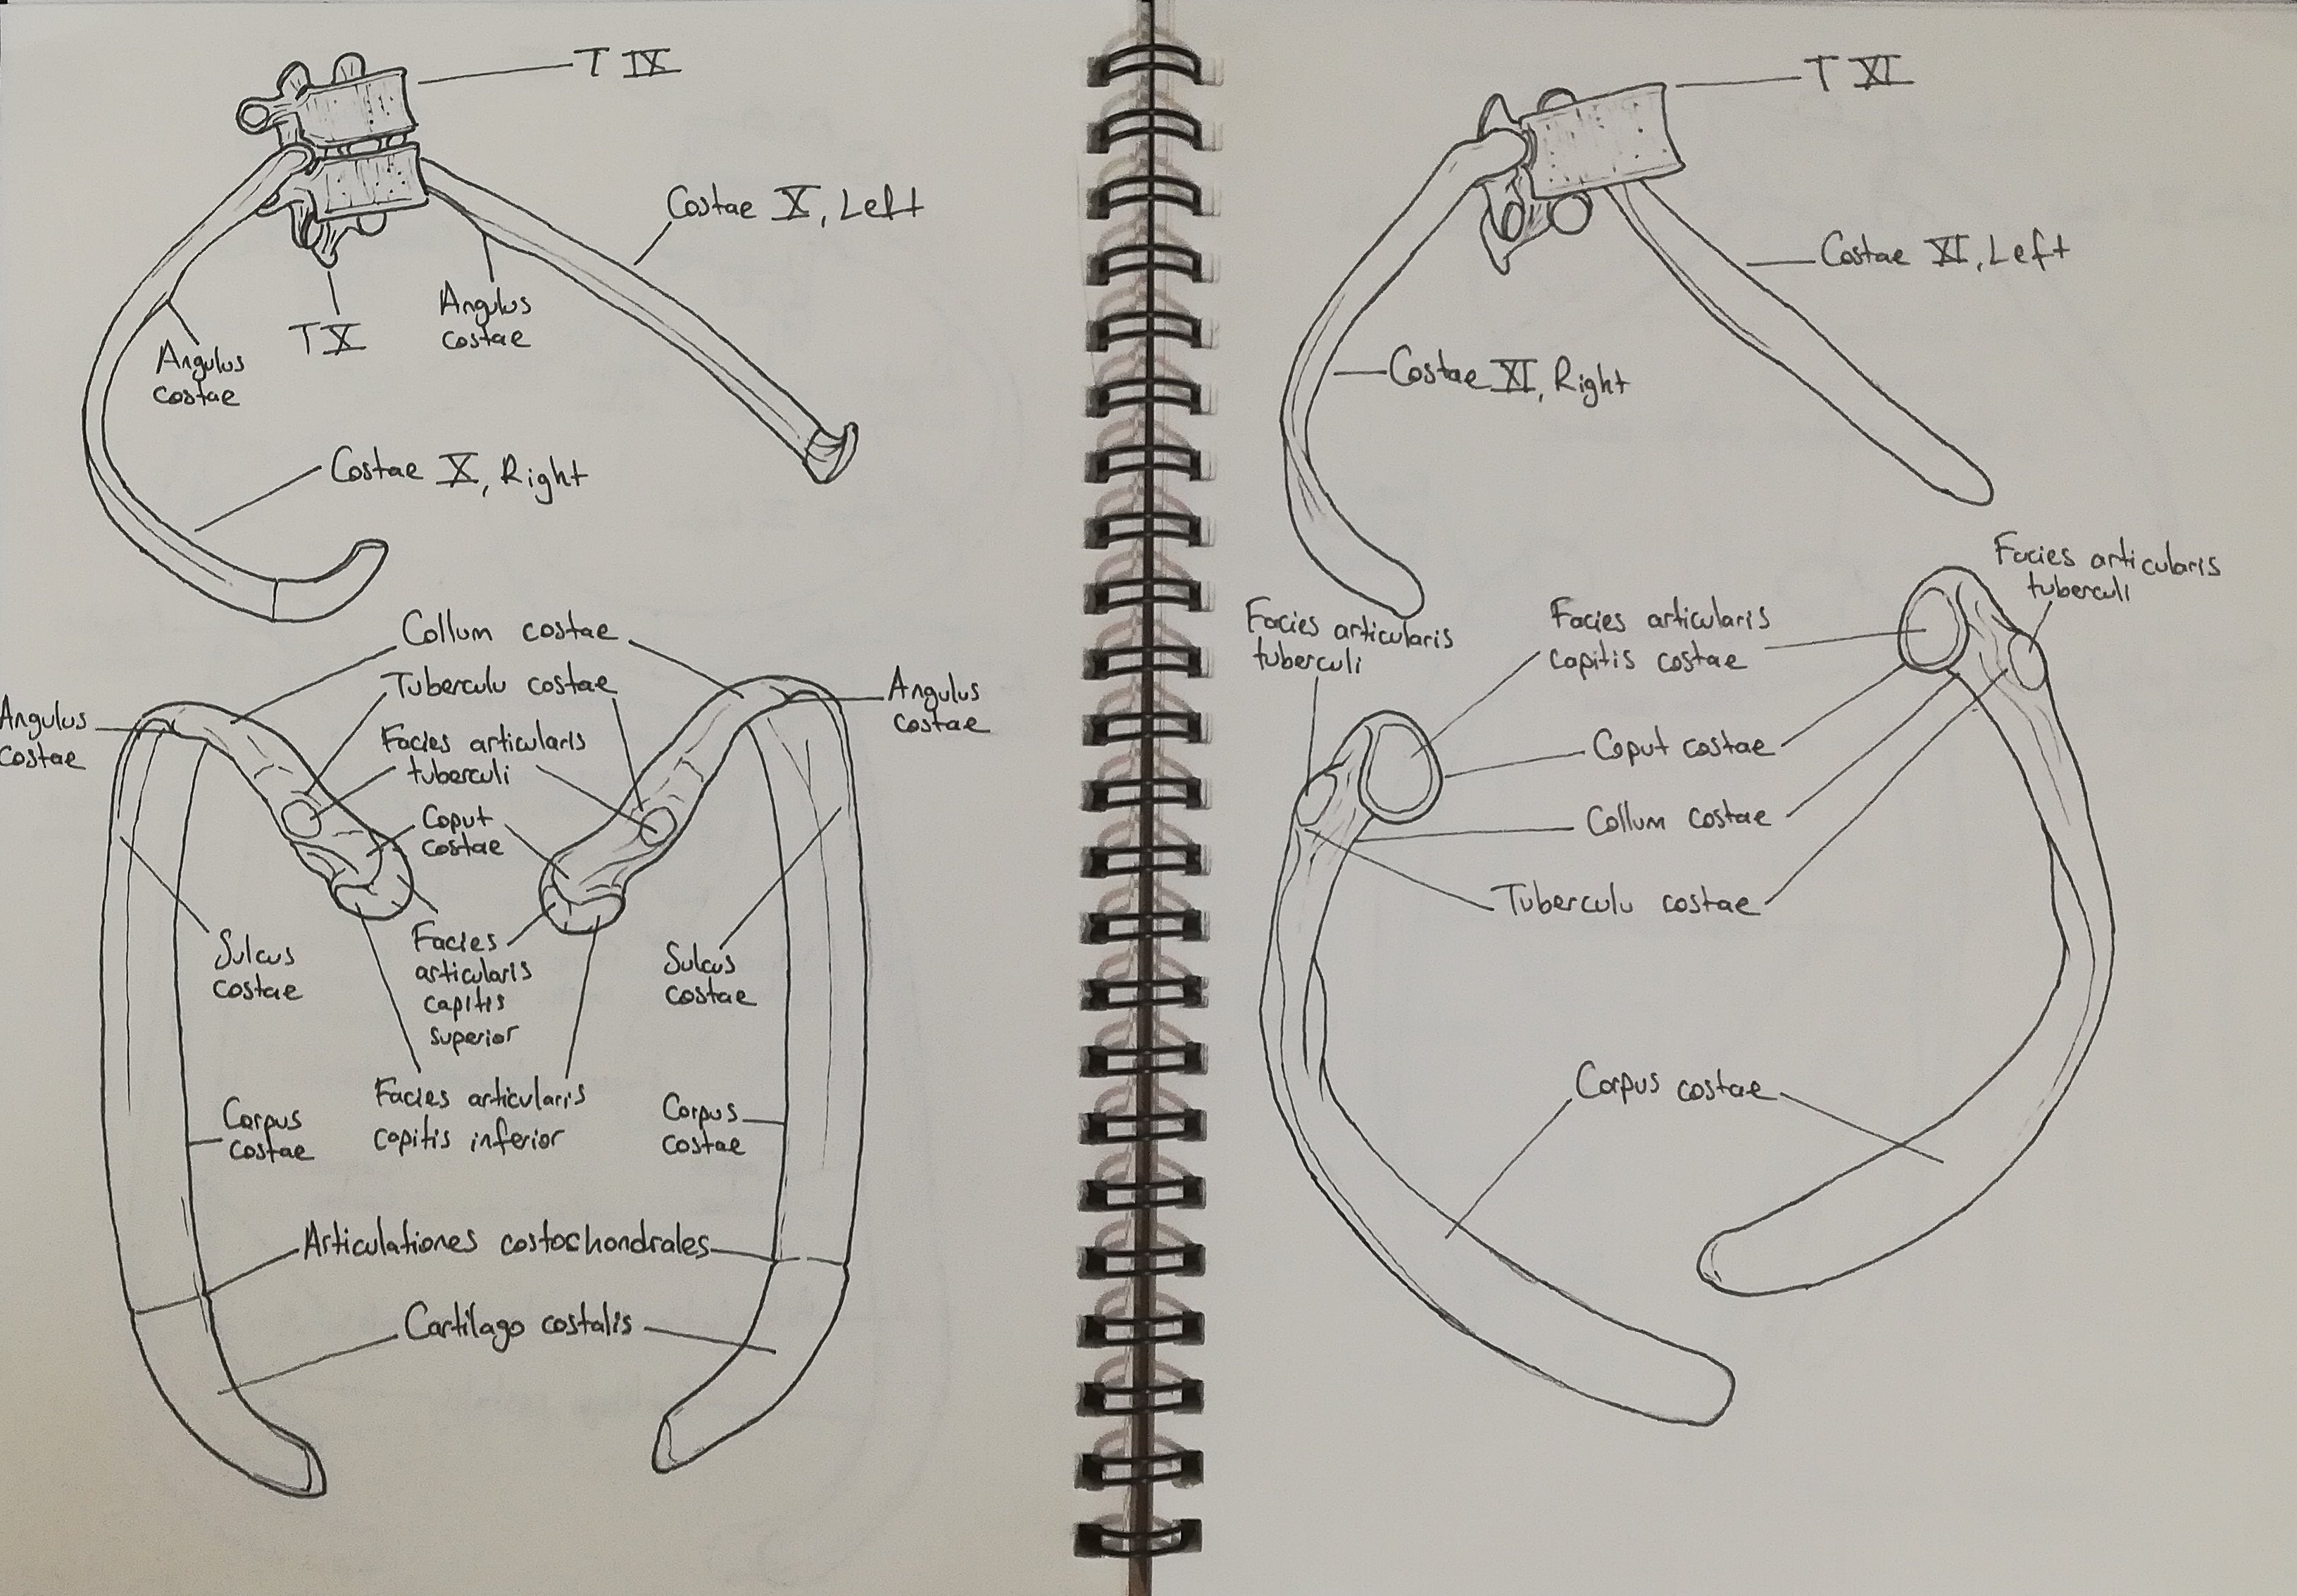 T IX
Costae X, Left
Angulus
costae
T X
Angulus
costae
Costae X, Right
Collum costae
Tuberculu costae
Angulus
costae
Angulus
costae
Facies articularis
tuberculi
Caput
costae
Sulcus
costae
Facies
articularis
capitis
superior
Sulcus
costae
Facies articularis
capitis inferior
Corpus
costae
Corpus
costae
Articulationes costochondrales
Cartilago costalis
T XI
Costae XI, Left
Costae XI, Right
Facies articularis
tuberculi
Facies articularis
capitis costae
Facies articularis
tuberculi
Caput costae
Collum costae
Tuberculu costae
Corpus costae